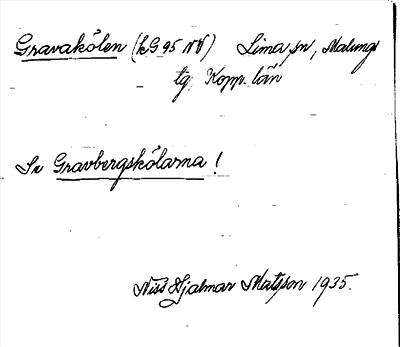 Gravakölen (kG 95 NV) Lima sn, Malungs
tg Kopp. län
Se Gravbergskölarna!
Niss Hjalmar Matsson 1935.